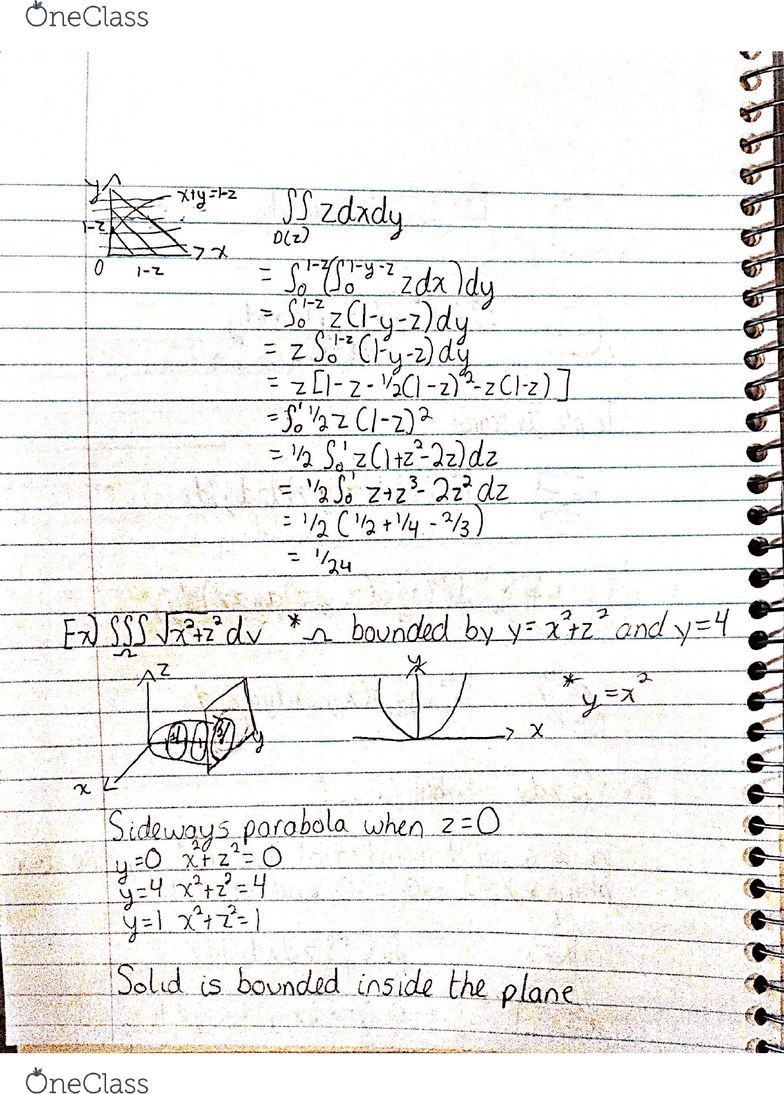 OneClass
y x+y=1-z
1-z
x
0 1-z
∫∫ zdxdy
D(z)
= ∫₀^1-z (∫₀^1-y-z zdx)dy
= ∫₀^1-z z(1-y-z)dy
= z ∫₀^1-z (1-y-z)dy
= z[1-z-1/2(1-z)²-z(1-z)]
= ∫₀¹ 1/2 z(1-z)²
= 1/2 ∫₀¹ z(1+z²-2z)dz
= 1/2 ∫₀¹ z+z³-2z² dz
= 1/2 (1/2+1/4-2/3)
= 1/24
Ex) ∫∫∫_Ω √x²+z² dv * Ω bounded by y=x²+z² and y=4
z
y
x
y
x
* y=x²
Sideways parabola when z=0
y=0 x²+z²=0
y=4 x²+z²=4
y=1 x²+z²=1
Solid is bounded inside the plane
OneClass